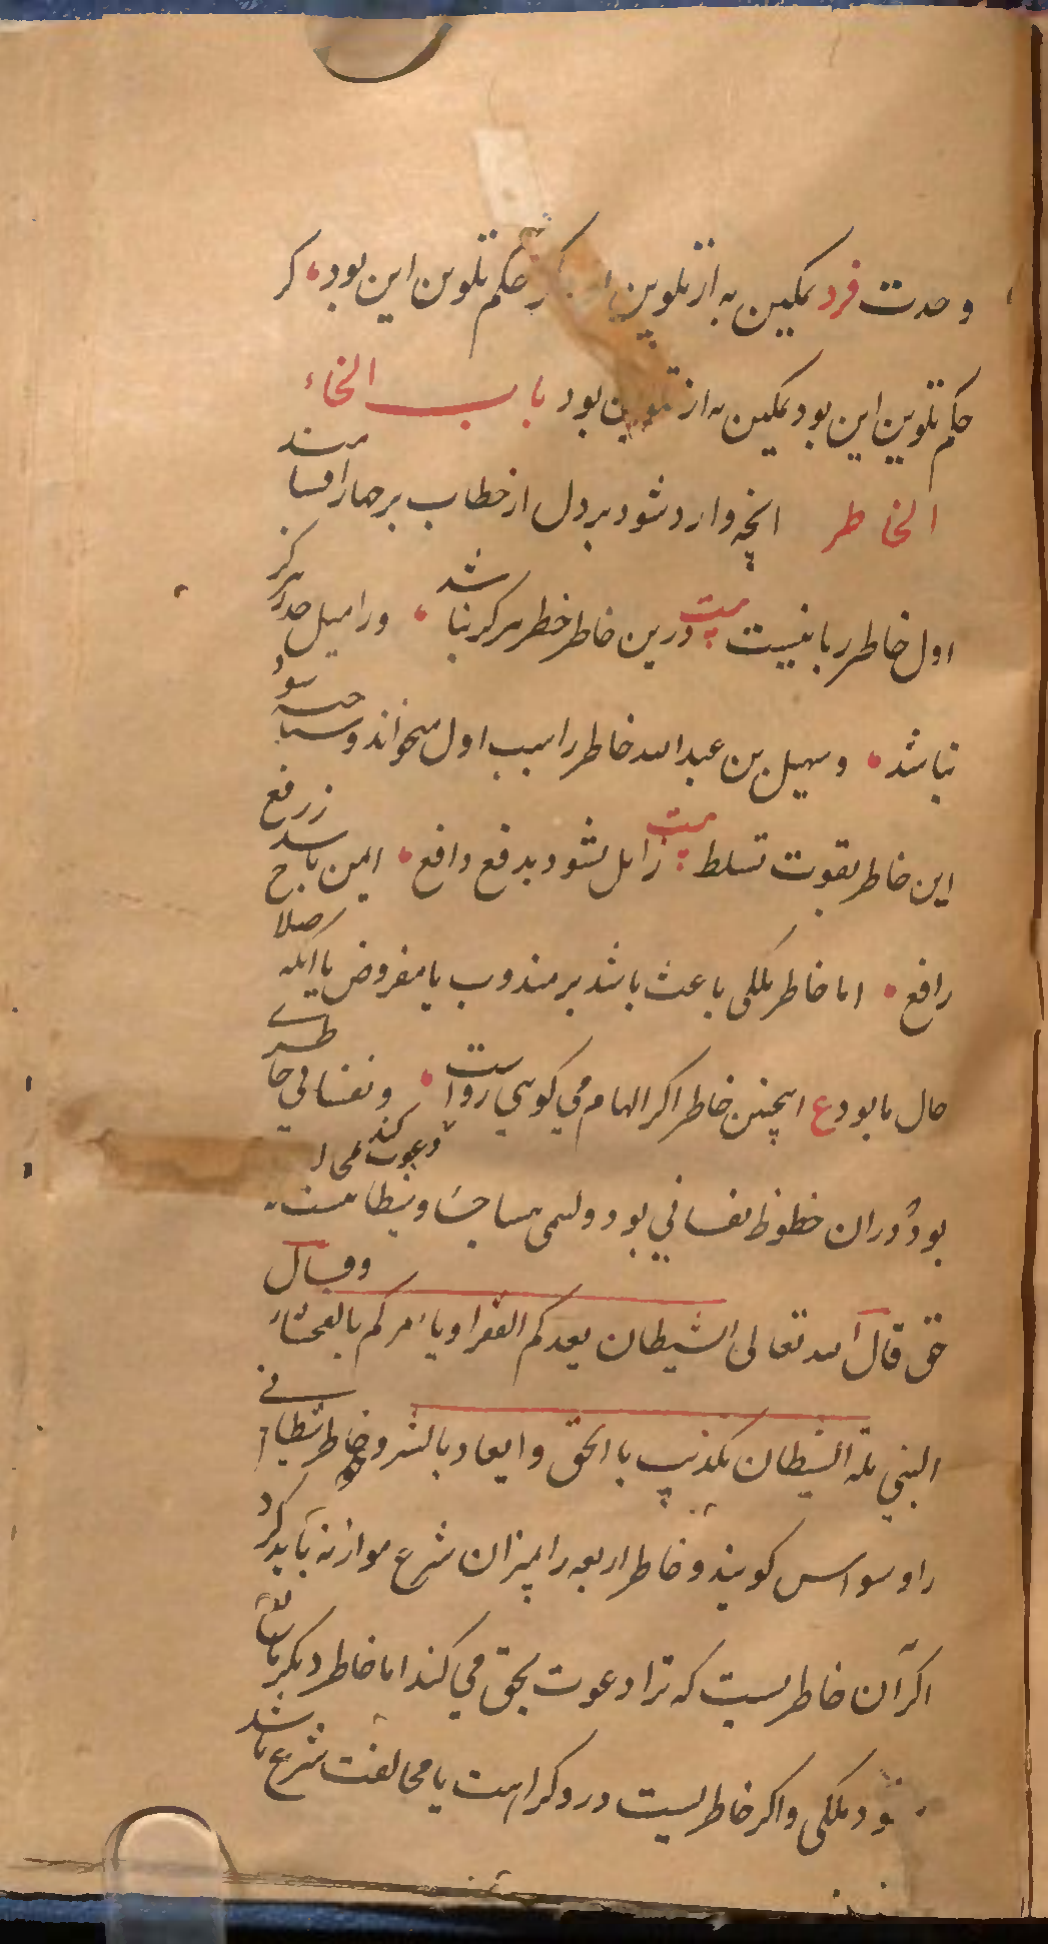 وحدت فرد تمکین به از تلوین حکم تلوین این بود کر
حکم تلوین این بود تمکین به از تلوین بود باب الخاء
الخاطر انچه وارد شود بر دل از خطاب بر چهار اقسامند
اول خاطر ربانیست بیت درین خاطر خطر هرگز نباشد ورا میل حذر هرگز
نباشد و سهیل بن عبدالله خاطر را سبب اول میخواند و
این خاطر بقوت تسلط بیت زایل نشود بدفع دافع ایمن باشد ز رفع
رافع اما خاطر ملکی باعث باشد بر مندوب یا مفروض
حال یا بود ع اینچنین خاطر اگر الهام می گویی رواست و نفسانی خاطری
بود در آن حظوظ نفسانی بود و شیطانیست دعوت کند
حق قال الله تعالی الشیطان یعدکم الفقر او یأمرکم بالفحشاء وقال
النبی لمة الشیطان تکذیب بالحق و ایعاد بالشر و خاطر شیطانی
را وسواس گویند و خاطر اربعه را بمیزان شرع موازنه باید کرد
اگر آن خاطریست که ترا دعوت بحق می کند اما خاطر دیگر
بود ملکی و اگر خاطریست درو کراهت یا مخالفت شرع باشد